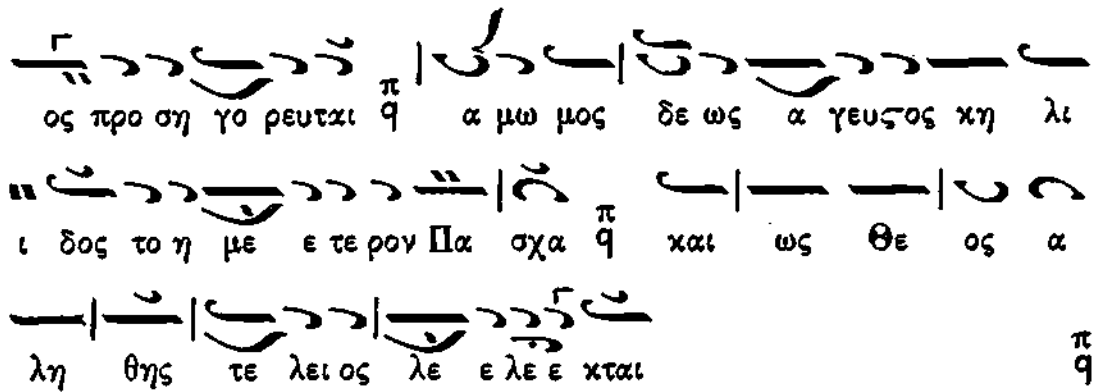 ος προ ση γο ρευται π q α μω μος δε ως α γευςτος κη λι
ι δος το η με ε τε ρον Πα σχα π q και ως Θε ος α
λη θης τε λει ος λε ε λε ε κται π q